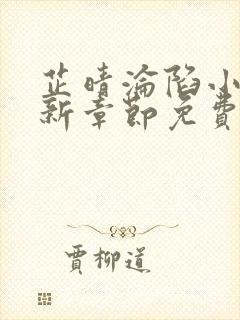 芷晴淪陷小
新章節免費
賈柳道